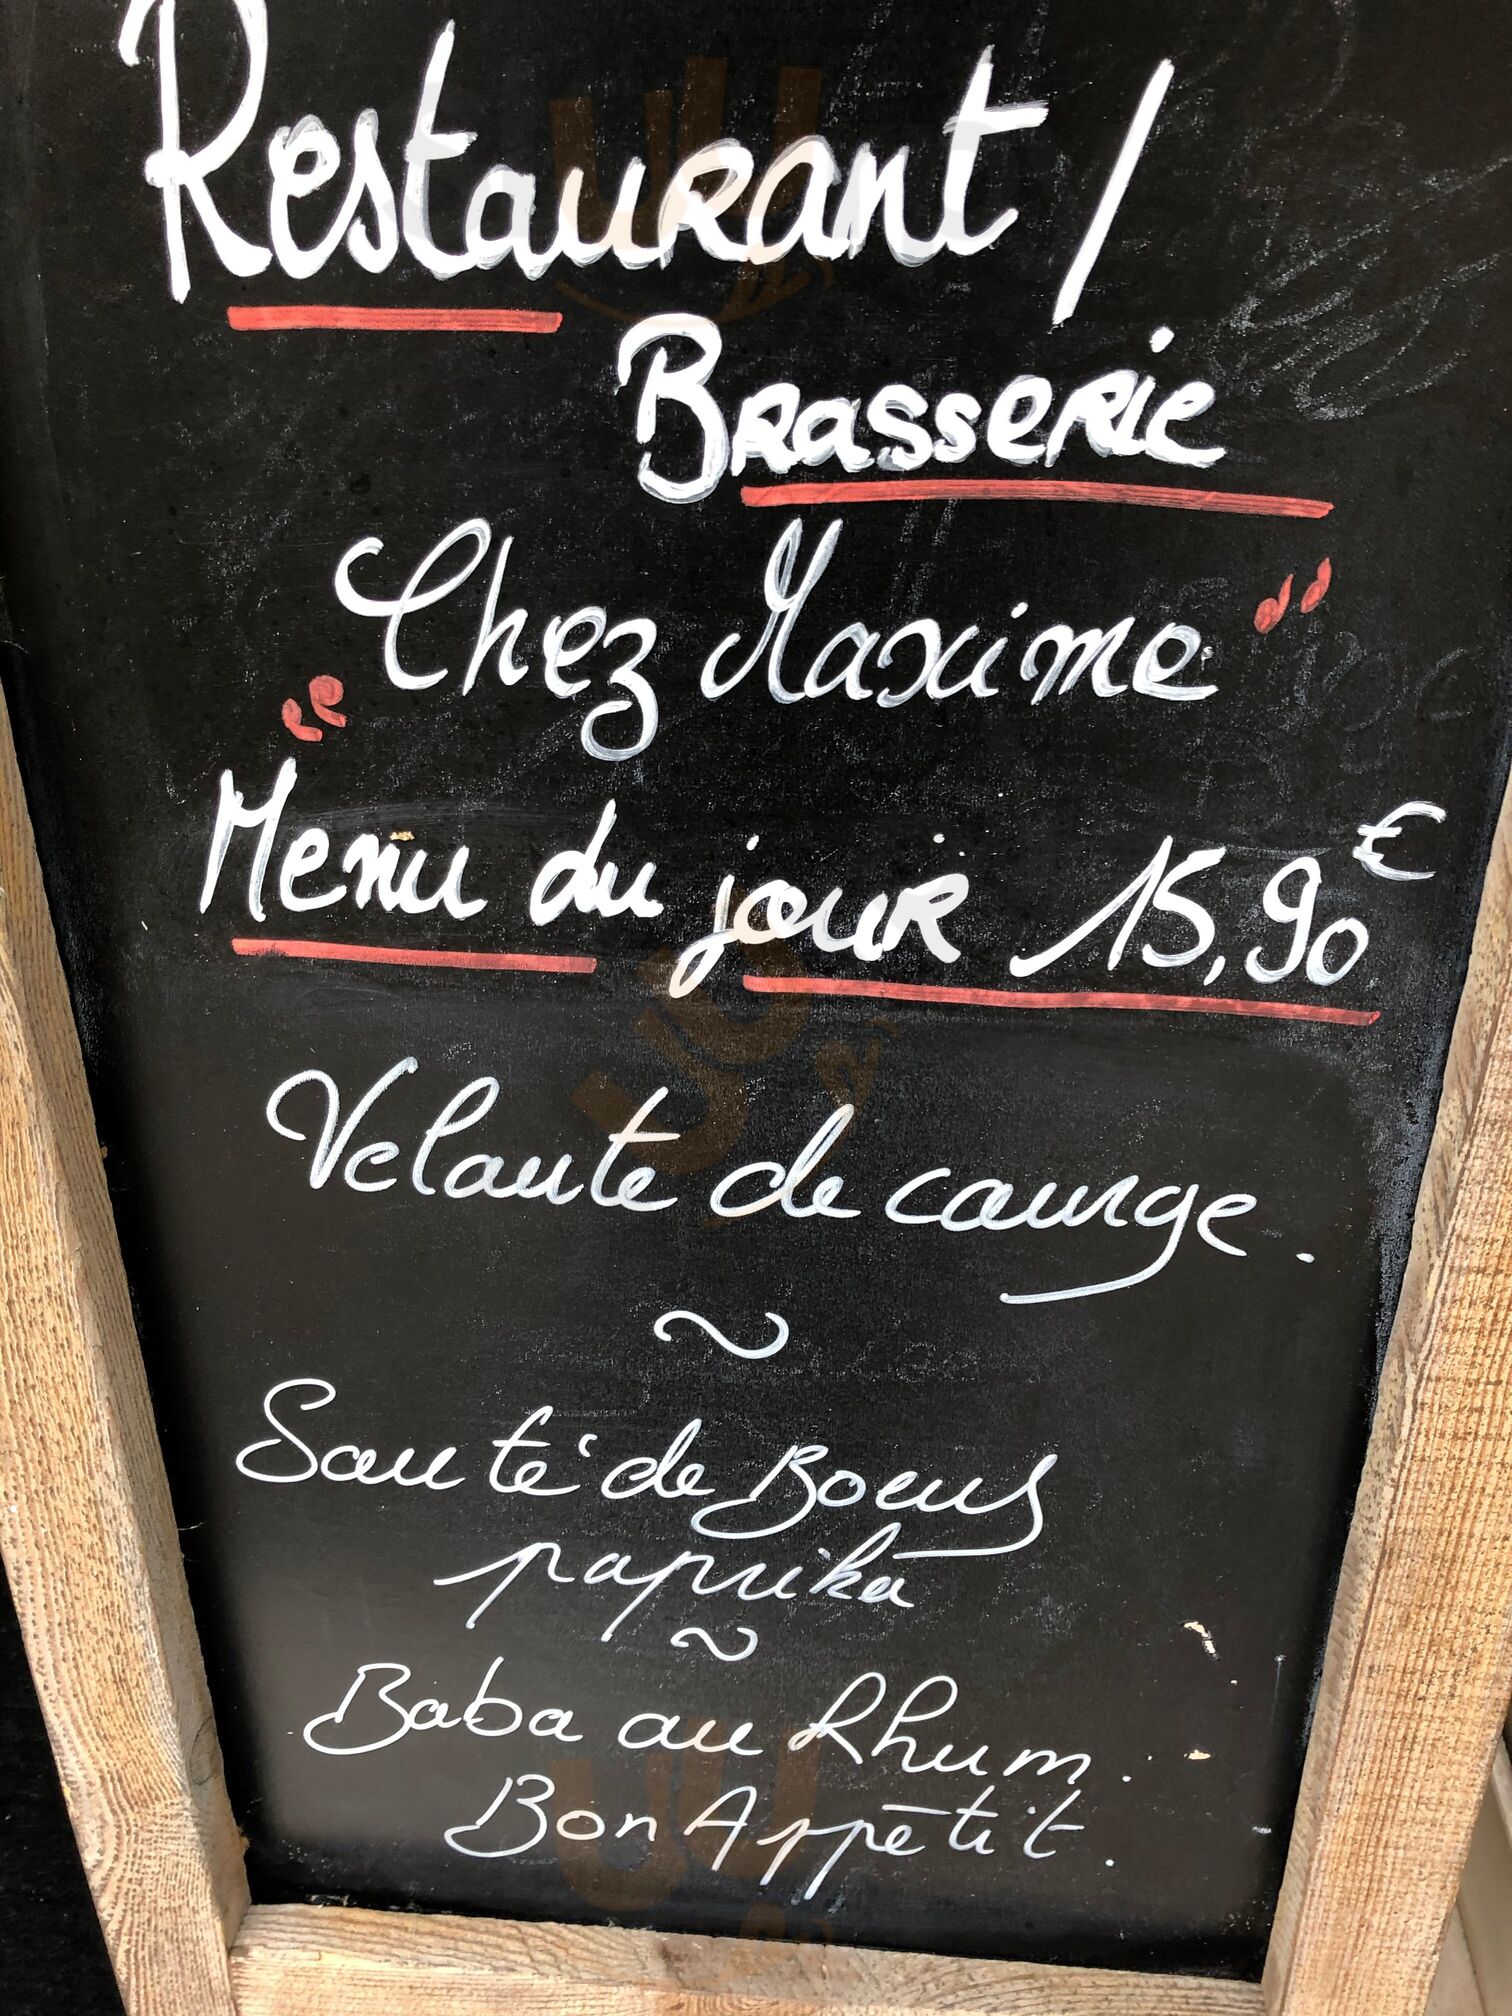 Restaurant /
Brasserie
"Chez Maxime"
Menu du jour 15,90€
Velaute de caurge.
~
Sauté de Boeuf
paprika
~
Baba au Rhum.
Bon Appētit.